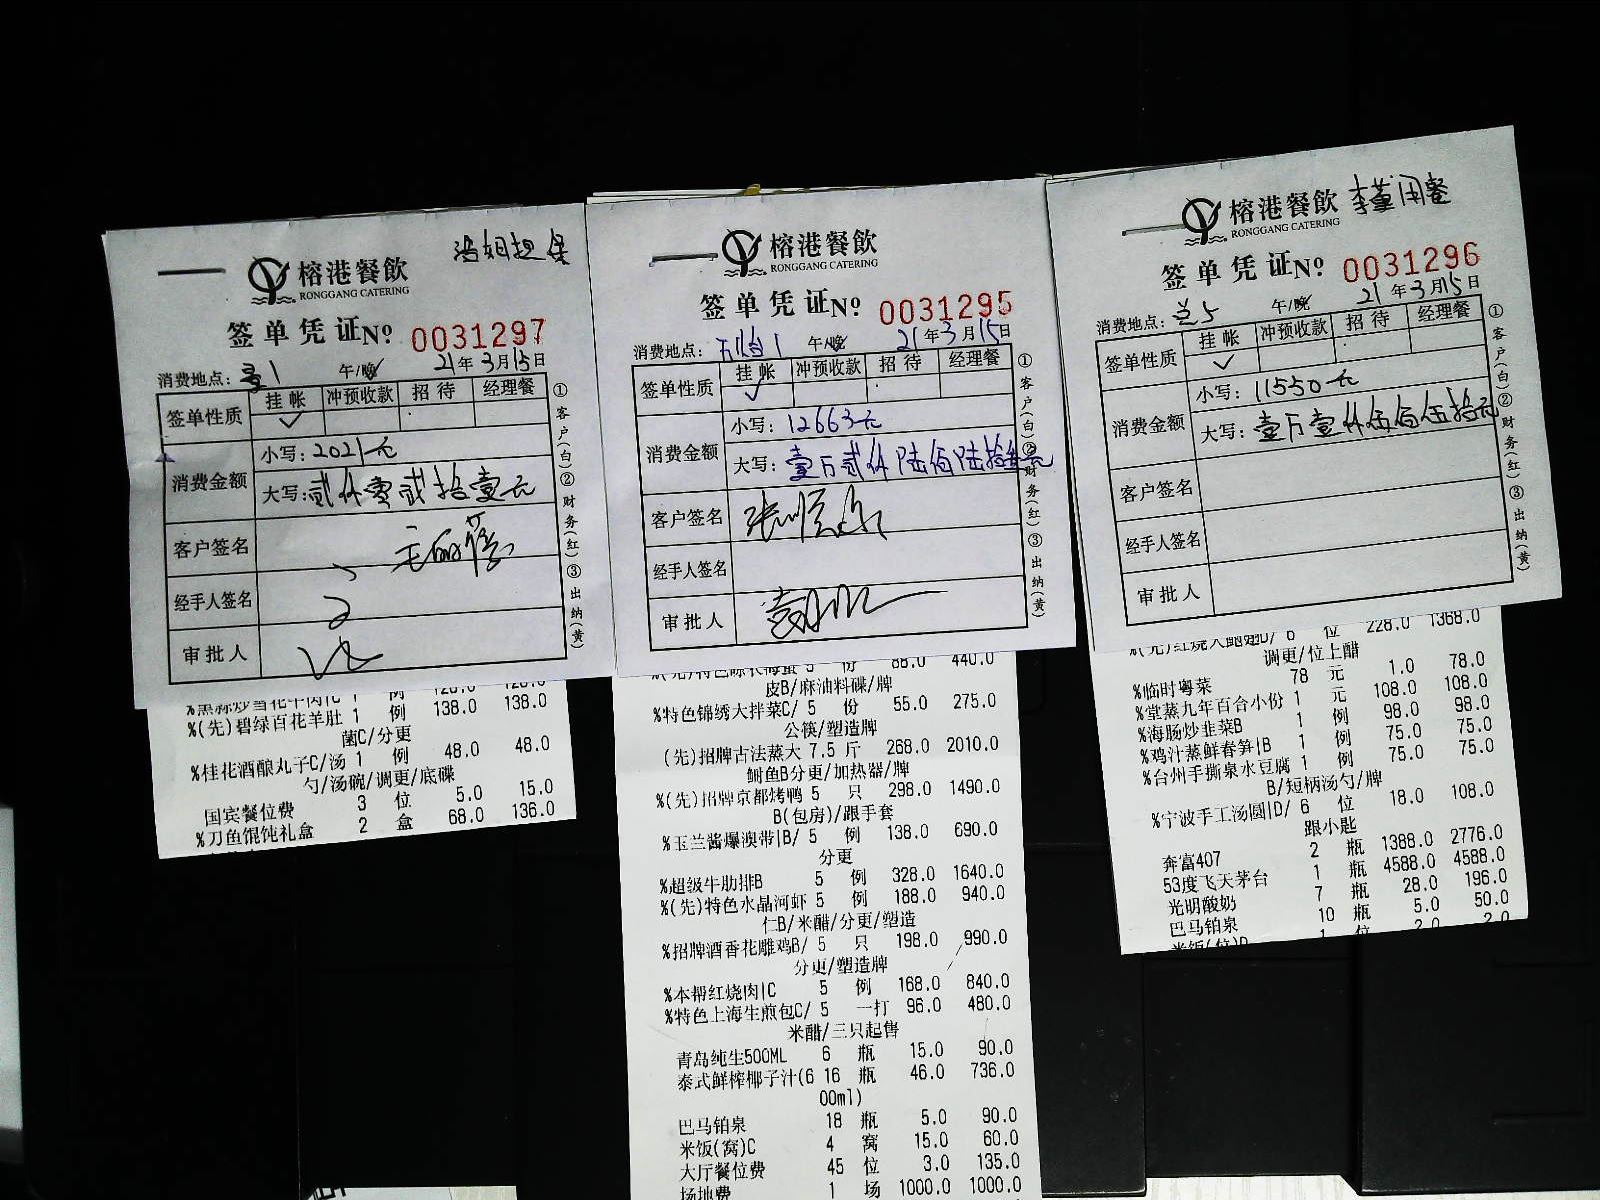 榕港餐飲
RONGGANG CATERING
签单凭证№ 0031297
消费地点: 午/晚 21年3月15日
签单性质 挂帐 冲预收款 招待 经理餐
消费金额
小写: 2021元
大写: 贰仟零贰拾壹元
客户签名
经手人签名
审批人
①客户(白)②财务(红)③出纳(黄)
%(先)碧绿百花羊肚 1 例 138.0 138.0
菌C/分更
%桂花酒酿丸子C/汤 1 例 48.0 48.0
勺/汤碗/调更/底碟
国宾餐位费 3 位 5.0 15.0
%刀鱼馄饨礼盒 2 盒 68.0 136.0
榕港餐飲
RONGGANG CATERING
签单凭证№ 0031295
消费地点: 午/晚 21年3月15日
签单性质 挂帐 冲预收款 招待 经理餐
消费金额
小写: 12663元
大写: 壹万贰仟陆佰陆拾叁元
客户签名
经手人签名
审批人
①客户(白)②财务(红)③出纳(黄)
5 份 88.0 440.0
皮B/麻油料碟/牌
%特色锦绣大拌菜C/ 5 份 55.0 275.0
公筷/塑造牌
(先)招牌古法蒸大 7.5 斤 268.0 2010.0
鲥鱼B分更/加热器/牌
%(先)招牌京都烤鸭 5 只 298.0 1490.0
B(包房)/跟手套
%玉兰酱爆澳带|B/ 5 例 138.0 690.0
分更
%超级牛肋排B 5 例 328.0 1640.0
%(先)特色水晶河虾 5 例 188.0 940.0
仁B/米醋/分更/塑造
%招牌酒香花雕鸡B/ 5 只 198.0 990.0
分更/塑造牌
%本帮红烧肉|C 5 例 168.0 840.0
%特色上海生煎包C/ 5 一打 96.0 480.0
米醋/三只起售
青岛纯生500ML 6 瓶 15.0 90.0
泰式鲜榨椰子汁(6 16 瓶 46.0 736.0
00ml)
巴马铂泉 18 瓶 5.0 90.0
米饭(窝)C 4 窝 15.0 60.0
大厅餐位费 45 位 3.0 135.0
场地费 1 场 1000.0 1000.0
榕港餐飲 李董用餐
RONGGANG CATERING
签单凭证№ 0031296
消费地点: 午/晚 21年3月15日
签单性质 挂帐 冲预收款 招待 经理餐
消费金额
小写: 11550元
大写: 壹万壹仟伍佰伍拾元
客户签名
经手人签名
审批人
①客户(白)②财务(红)③出纳(黄)
6 位 228.0 1368.0
调更/位上醋
%临时粤菜 78 元 1.0 78.0
%堂蒸九年百合小份 1 元 108.0 108.0
%海肠炒韭菜B 1 例 98.0 98.0
%鸡汁蒸鲜春笋|B 1 例 75.0 75.0
%台州手撕泉水豆腐 1 例 75.0 75.0
B/短柄汤勺/牌
%宁波手工汤圆|D/ 6 位 18.0 108.0
跟小匙
奔富407 2 瓶 1388.0 2776.0
53度飞天茅台 1 瓶 4588.0 4588.0
光明酸奶 7 瓶 28.0 196.0
巴马铂泉 10 瓶 5.0 50.0
米饭(位)D 1 位 2.0 2.0